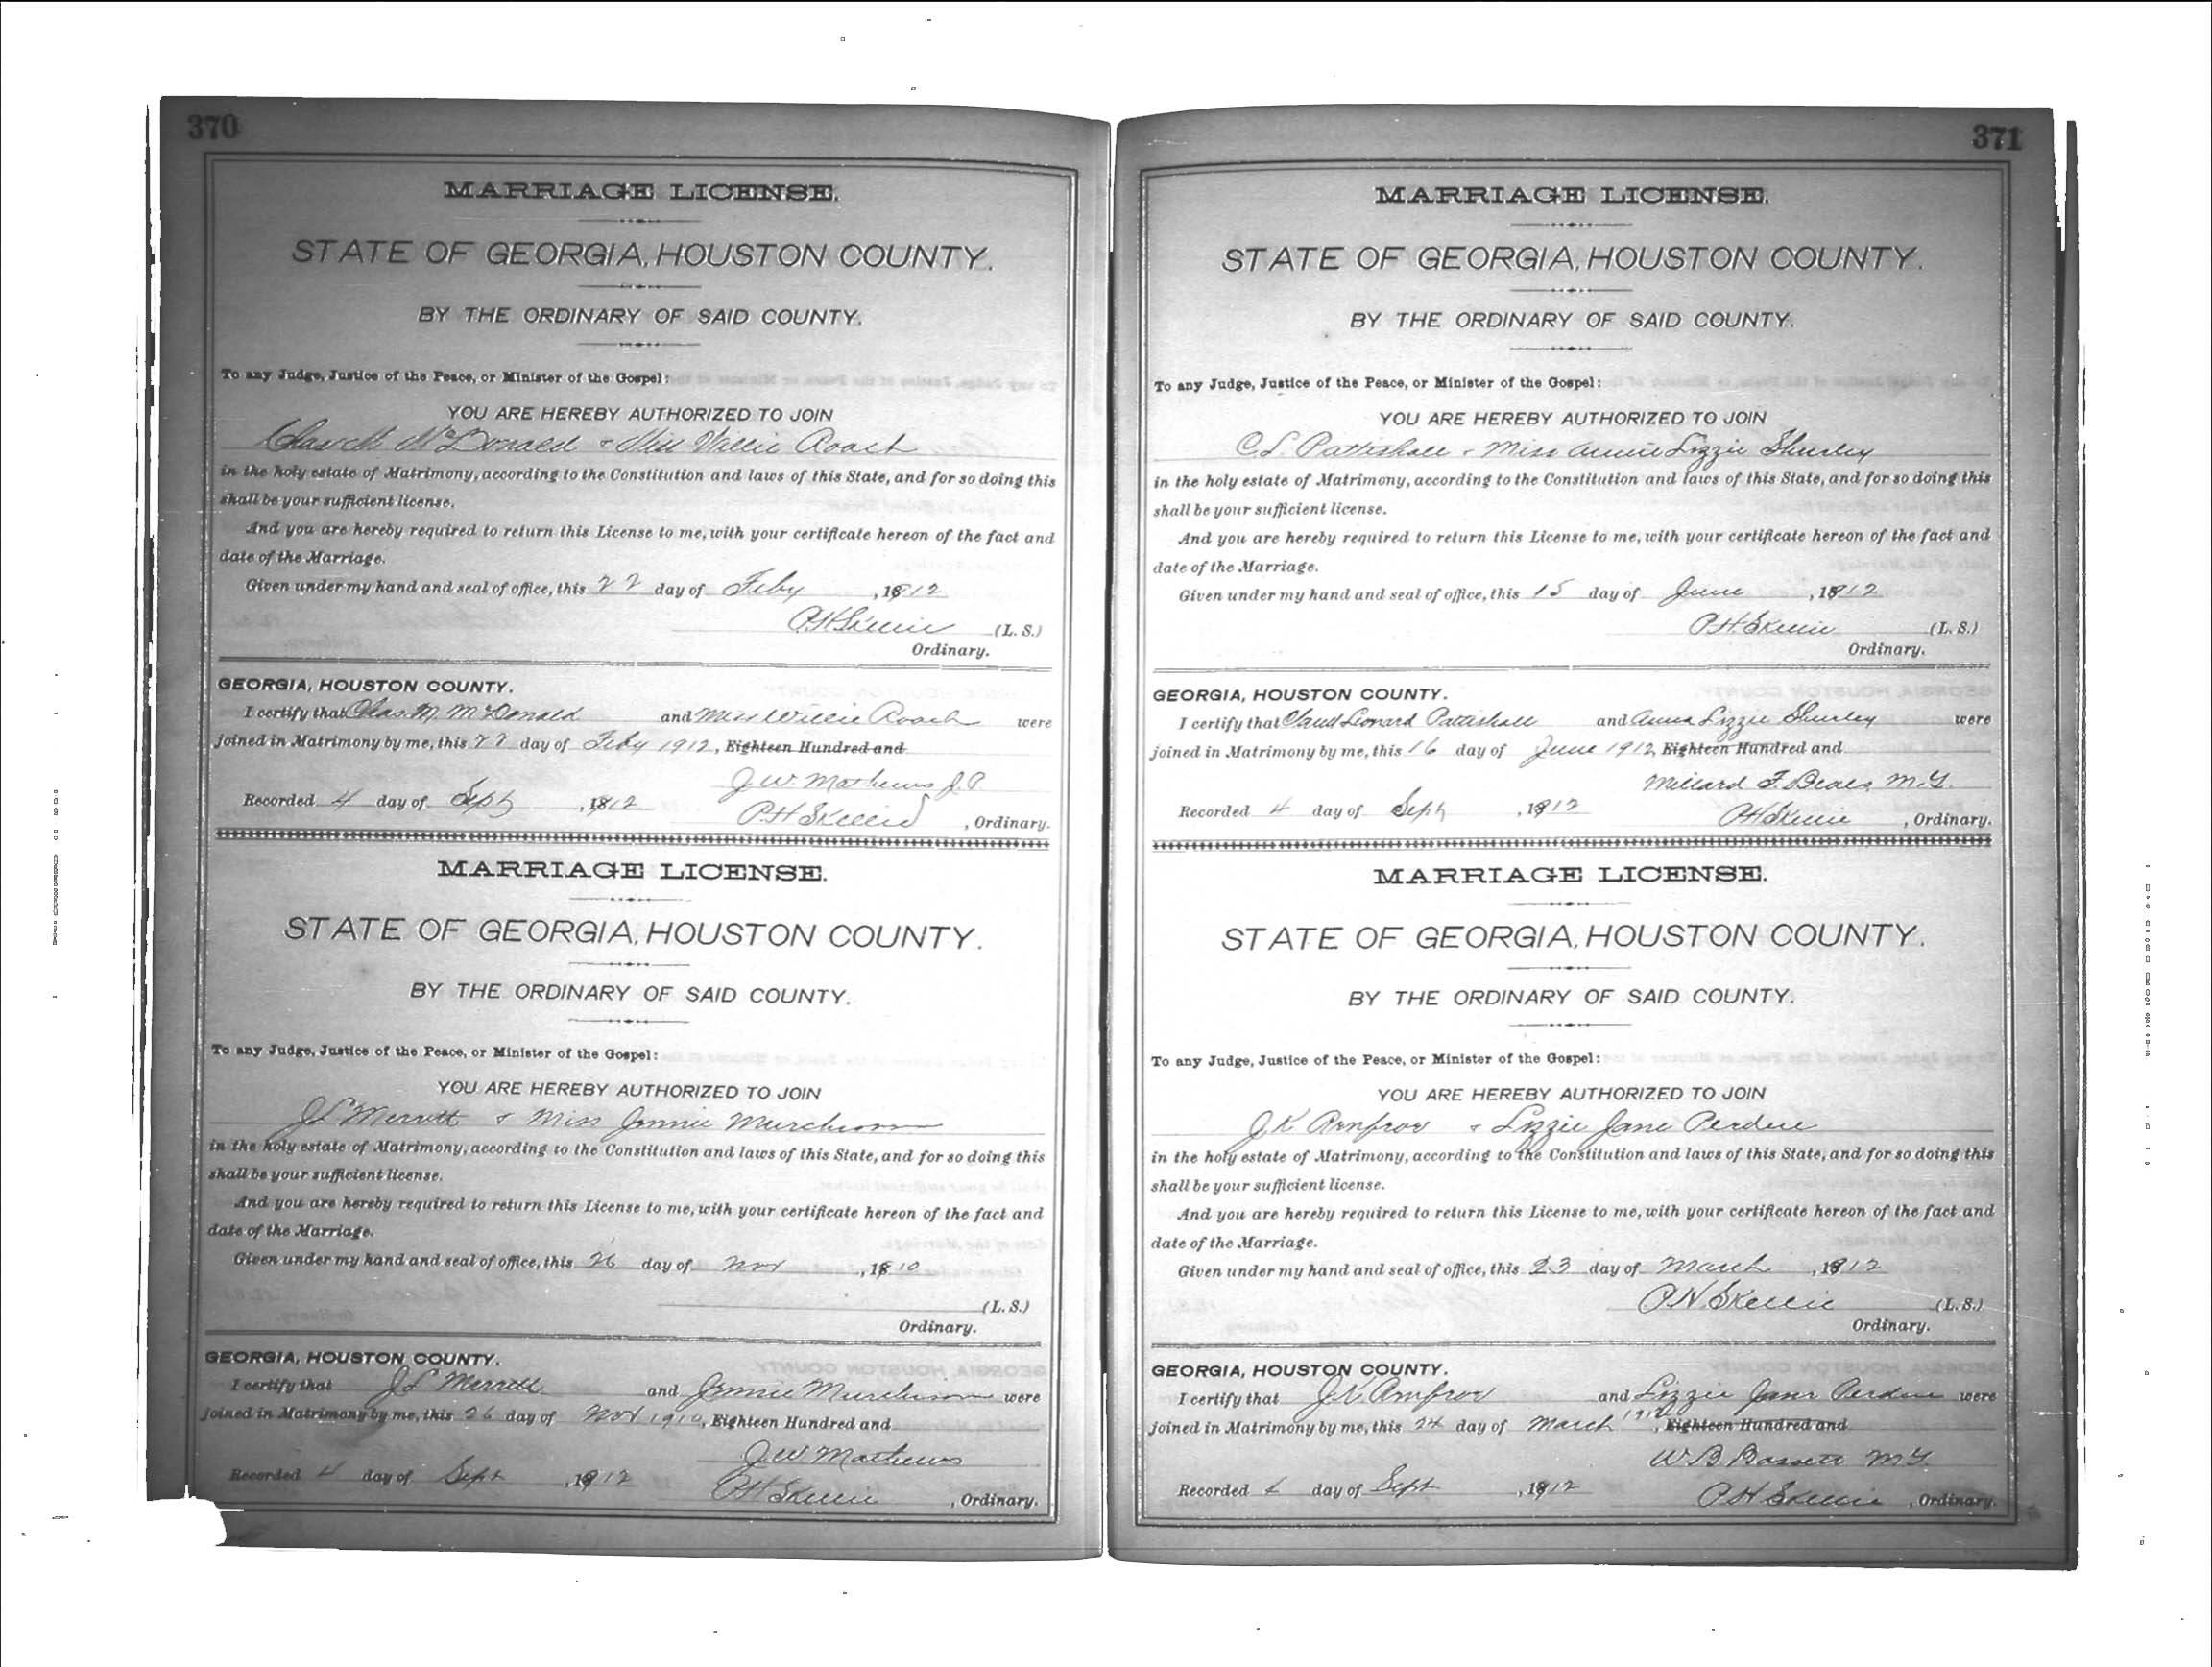 370
MARRIAGE LICENSE.
STATE OF GEORGIA, HOUSTON COUNTY.
BY THE ORDINARY OF SAID COUNTY.
To any Judge, Justice of the Peace, or Minister of the Gospel:
YOU ARE HEREBY AUTHORIZED TO JOIN
Chas M McDonald & Miss Willie Roach
in the holy estate of Matrimony, according to the Constitution and laws of this State, and for so doing this
shall be your sufficient license.
And you are hereby required to return this License to me, with your certificate hereon of the fact and
date of the Marriage.
Given under my hand and seal of office, this 22 day of Feby, 1912
(L. S.)
Ordinary.
GEORGIA, HOUSTON COUNTY.
I certify that Chas M McDonald and Miss Willie Roach were
joined in Matrimony by me, this 22 day of Feby 1912, Eighteen Hundred and
J W Mathews J.P.
Recorded 4 day of Sept, 1912
, Ordinary.
MARRIAGE LICENSE.
STATE OF GEORGIA, HOUSTON COUNTY.
BY THE ORDINARY OF SAID COUNTY.
To any Judge, Justice of the Peace, or Minister of the Gospel:
YOU ARE HEREBY AUTHORIZED TO JOIN
& Miss Jennie Murchison
in the holy estate of Matrimony, according to the Constitution and laws of this State, and for so doing this
shall be your sufficient license.
And you are hereby required to return this License to me, with your certificate hereon of the fact and
date of the Marriage.
Given under my hand and seal of office, this 26 day of Nov, 1910
(L. S.)
Ordinary.
GEORGIA, HOUSTON COUNTY.
I certify that and Jennie Murchison were
joined in Matrimony by me, this 26 day of Nov 1910, Eighteen Hundred and
J W Mathews
Recorded 4 day of Sept, 1912
, Ordinary.
371
MARRIAGE LICENSE.
STATE OF GEORGIA, HOUSTON COUNTY.
BY THE ORDINARY OF SAID COUNTY.
To any Judge, Justice of the Peace, or Minister of the Gospel:
YOU ARE HEREBY AUTHORIZED TO JOIN
C. L. Pattishall & Miss Annie Lizzie Shurley
in the holy estate of Matrimony, according to the Constitution and laws of this State, and for so doing this
shall be your sufficient license.
And you are hereby required to return this License to me, with your certificate hereon of the fact and
date of the Marriage.
Given under my hand and seal of office, this 15 day of June, 1912
(L. S.)
Ordinary.
GEORGIA, HOUSTON COUNTY.
I certify that Claud Leonard Pattishall and Anna Lizzie Shurley were
joined in Matrimony by me, this 16 day of June 1912, Eighteen Hundred and
Millard F. Beals M.G.
Recorded 4 day of Sept, 1912
, Ordinary.
MARRIAGE LICENSE.
STATE OF GEORGIA, HOUSTON COUNTY.
BY THE ORDINARY OF SAID COUNTY.
To any Judge, Justice of the Peace, or Minister of the Gospel:
YOU ARE HEREBY AUTHORIZED TO JOIN
& Lizzie Jane Perdue
in the holy estate of Matrimony, according to the Constitution and laws of this State, and for so doing this
shall be your sufficient license.
And you are hereby required to return this License to me, with your certificate hereon of the fact and
date of the Marriage.
Given under my hand and seal of office, this 23 day of March, 1912
(L. S.)
Ordinary.
GEORGIA, HOUSTON COUNTY.
I certify that and Lizzie Jane Perdue were
joined in Matrimony by me, this 24 day of March 1912, Eighteen Hundred and
W. B. Bassett M.G.
Recorded 4 day of Sept, 1912
, Ordinary.